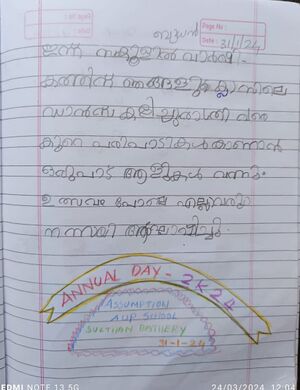 ബുധൻ
Page No :
Date : 31/1/24
ഇന്ന് സ്കൂളിൽ വാർഷി-
കത്തിന് ഞങ്ങളുടെ ക്ലാസിലെ
ഡാൻസ് കളിച്ചു രാത്രി വരെ
കുറെ പരിപാടികൾ കാണാൻ
ഒരുപാട് ആളുകൾ വന്നു.
ഉത്സവം പോലെ എല്ലാവരും
നന്നായി ആഘോഷിച്ചു.
ANNUAL DAY - 2K24
ASSUMPTION
AUP SCHOOL
SULTHAN BATHERY
31-1-24
EDMI NOTE 13 5G
24/03/2024 12:04